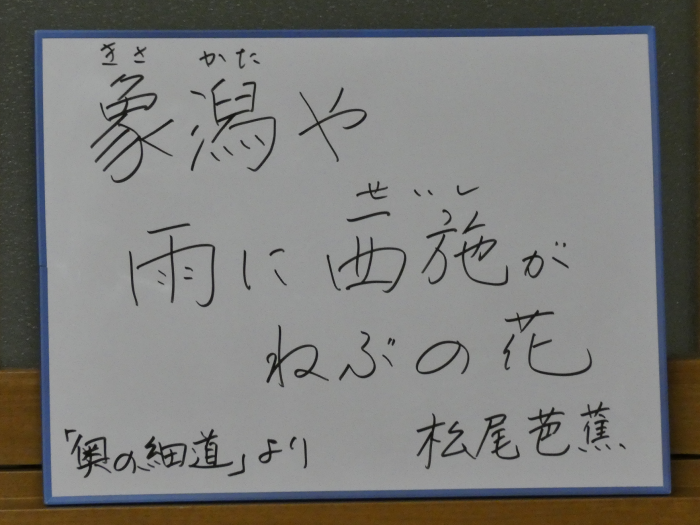 きさ かた
象潟や
せいし
雨に西施が
ねぶの花
「奥の細道」より
松尾芭蕉